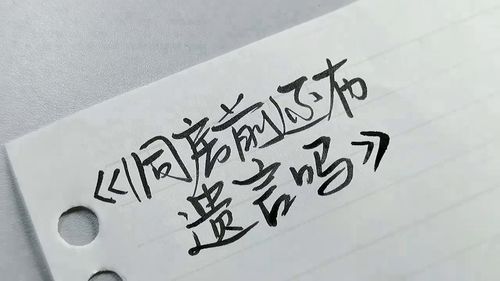 《同房前还有
遗言吗》